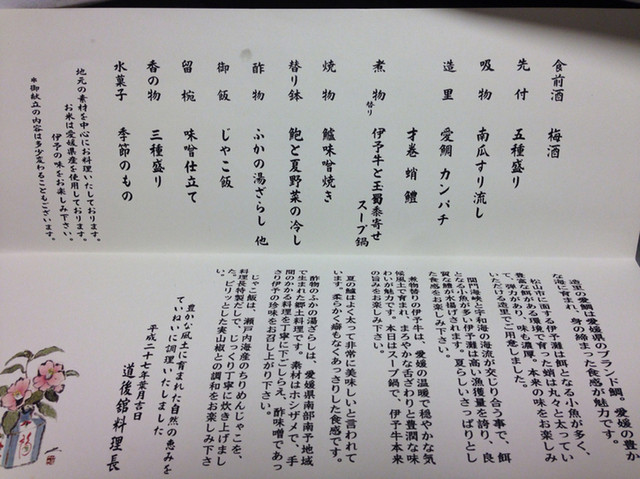 食前酒　梅酒
先付　五種盛り
吸物　南瓜すり流し
造里　愛鯛 カンパチ
才巻 蛸 鱧
煮物 替り　伊予牛と玉蜀黍寄せ
スープ鍋
焼物　鱸味噌焼き
替り鉢　鮑と夏野菜の冷し
酢物　ふかの湯ざらし 他
御飯　じゃこ飯
留椀　味噌仕立て
香の物　三種盛り
水菓子　季節のもの
地元の素材を中心にお料理いたしております。
お米は愛媛県産を使用しております。
伊予の味をお楽しみ下さい。
*御献立の内容は多少変わることもございます。
造里の愛鯛は愛媛県のブランド鯛、愛媛の豊か
な海に育まれ、身の締まった食感が魅力です。
松山市に面する伊予灘は餌となる小魚が多く、
豊富な餌がある環境で育った蛸は丸々と太ってい
て、弾力があり、味も濃厚。本来の味をお楽しみ
いただける造里でご用意しました。
関門海峡と宇和海の海流が交じり合う事で、餌
となる小魚が多い伊予灘は高い漁獲量を誇り、良
質な鱧が水揚げされます。夏らしいさっぱりとし
た食感をお楽しみ下さい。
煮物替りの伊予牛は、愛媛の温暖で穏やかな気
候風土で育まれ、まろやかな舌ざわりと豊潤な味
わいが魅力です。本日はスープ鍋で、伊予牛本来
の旨みをお楽しみ下さい。
夏の鱸はよく太って非常に美味しいと言われて
います。柔らかく癖もなくあっさりした食感です。
酢物のふかの湯ざらしは、愛媛県南部南予地域
で生まれた郷土料理です。素材はホシザメで、手
間のかかる料理を丁寧に下ごしらえ、酢味噌であっ
さり伊予の珍味をお召し上がり下さい。
じゃこ飯は、瀬戸内海産のちりめんじゃこを、
料理長特製だしで、じっくり丁寧に炊き上げまし
た。ピリッとした実山椒との調和をお楽しみ下さ
い。
豊かな風土に育まれた自然の恵みを
ていねいに調理いたしました
平成二十七年葉月吉日
道後舘料理長